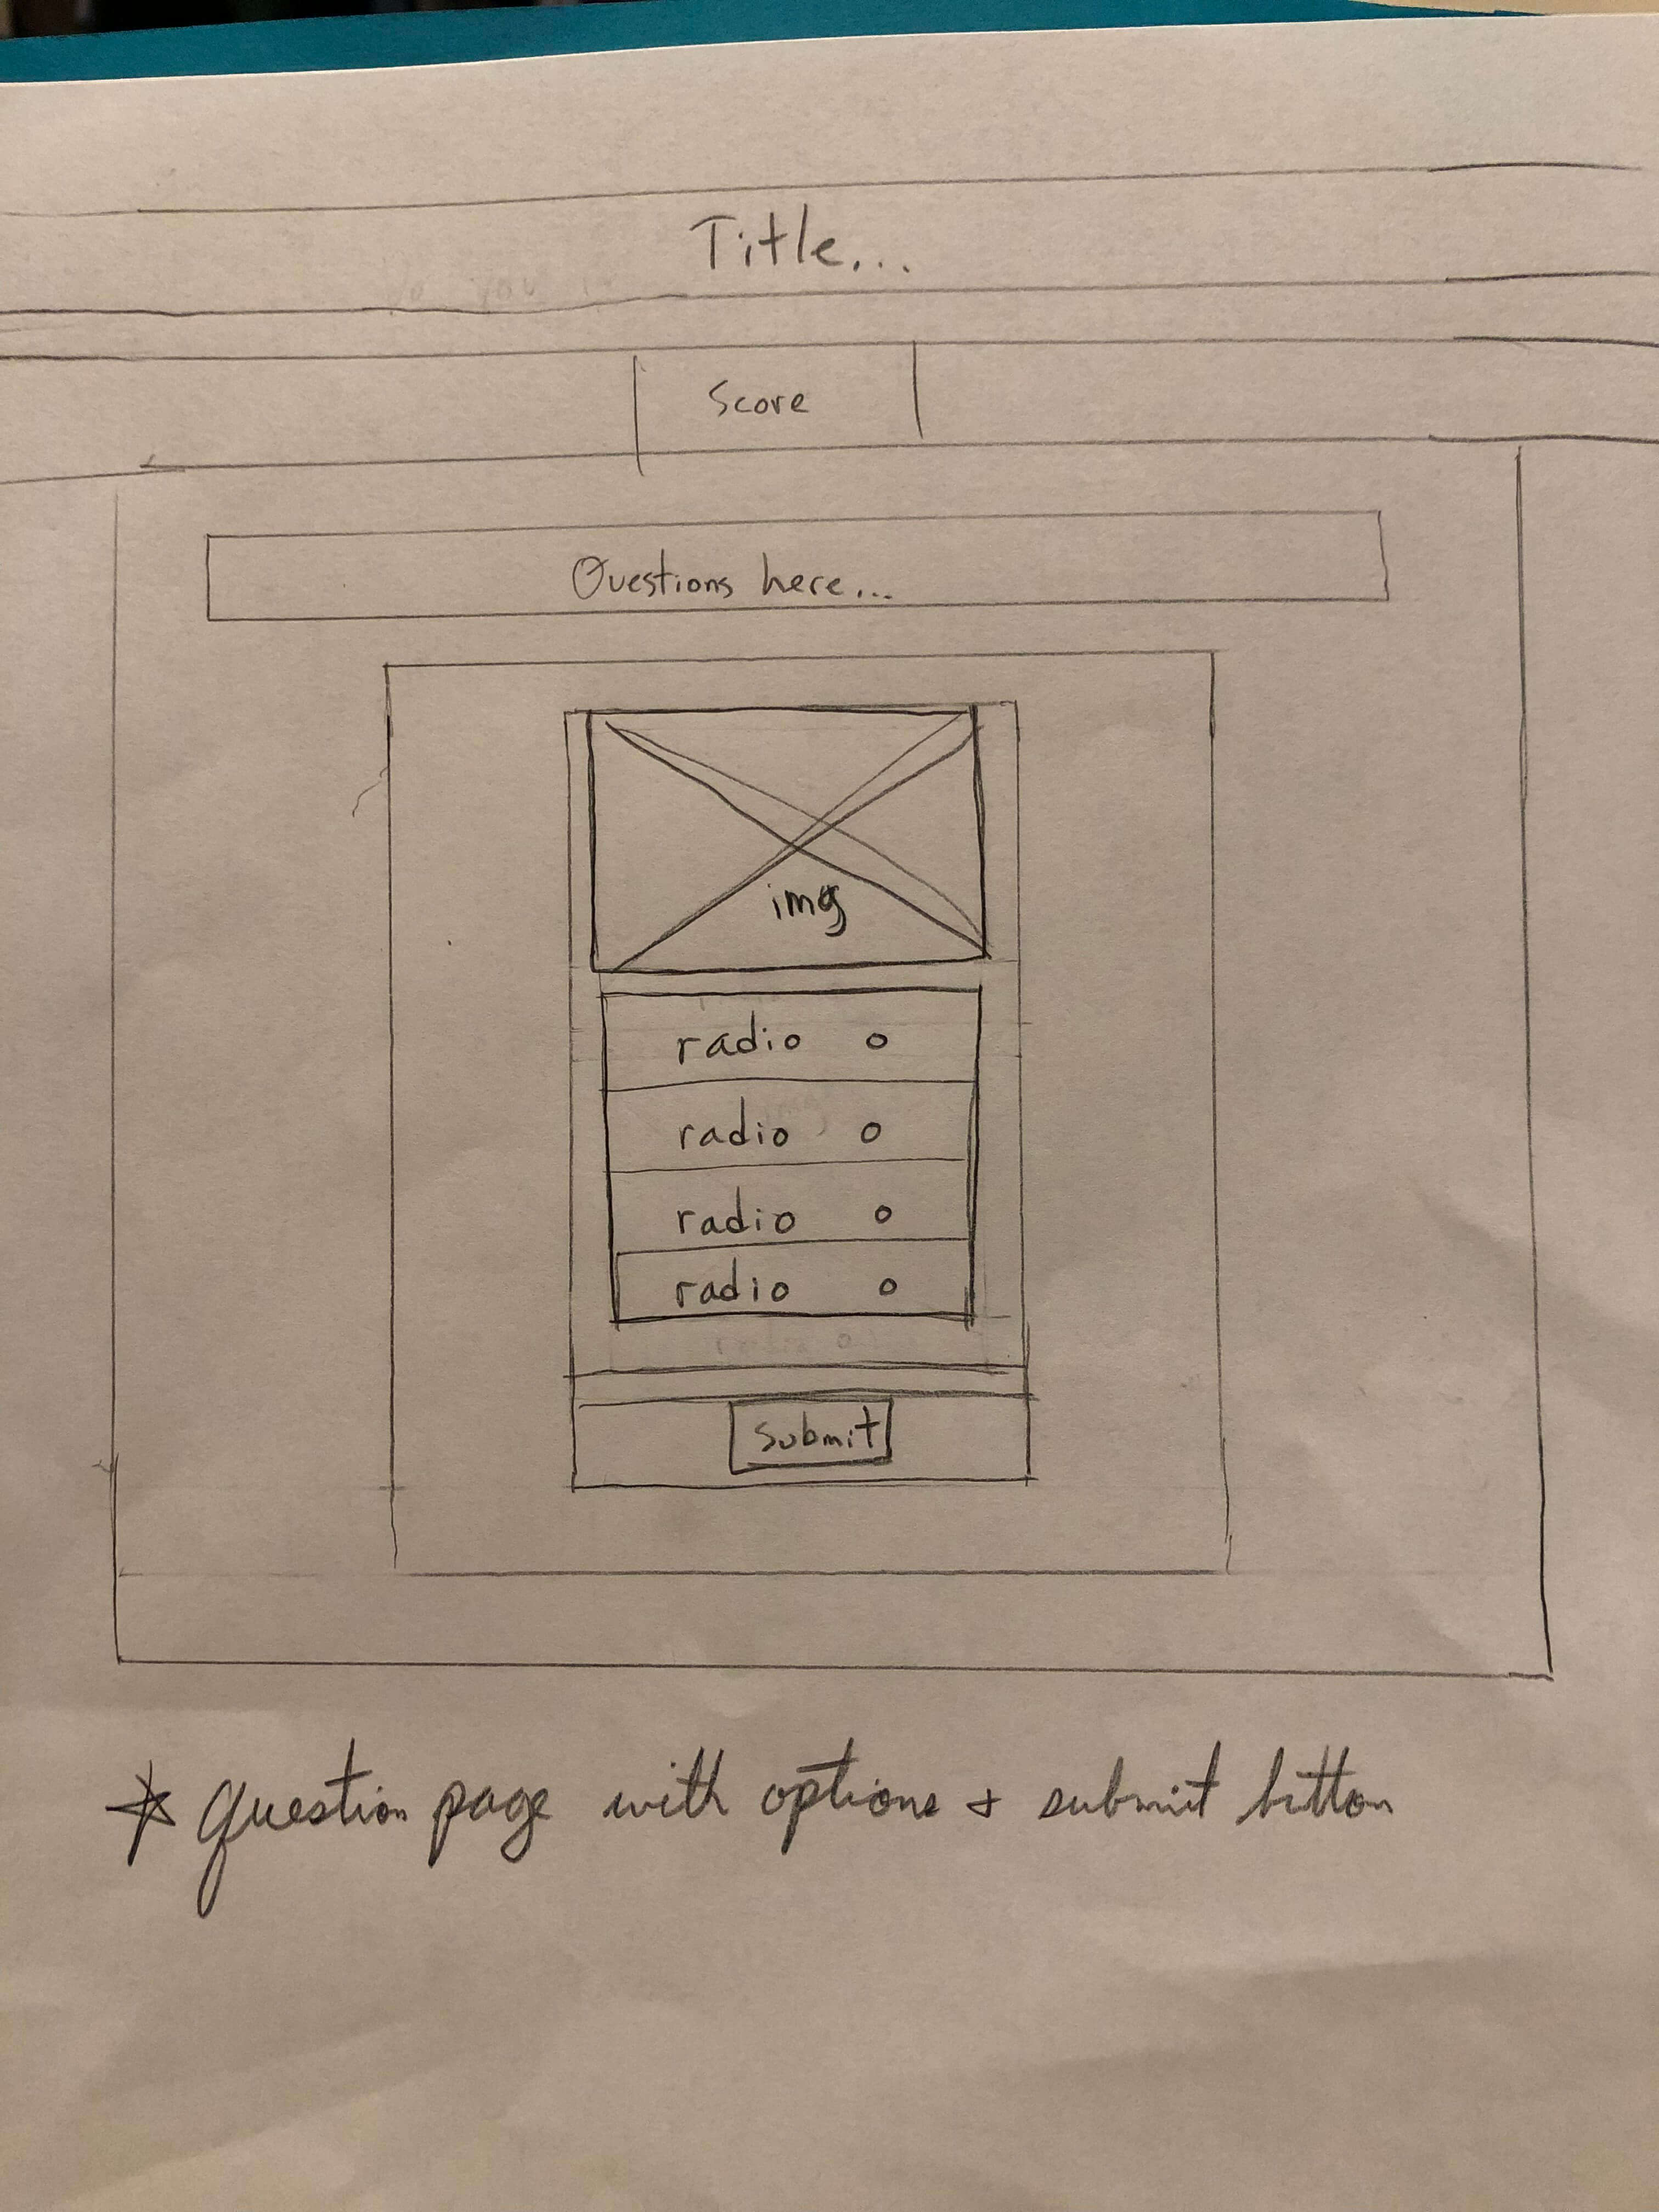 Title...
Score
Questions here...
img
radio o
radio o
radio o
radio o
submit
* question page with options + submit button